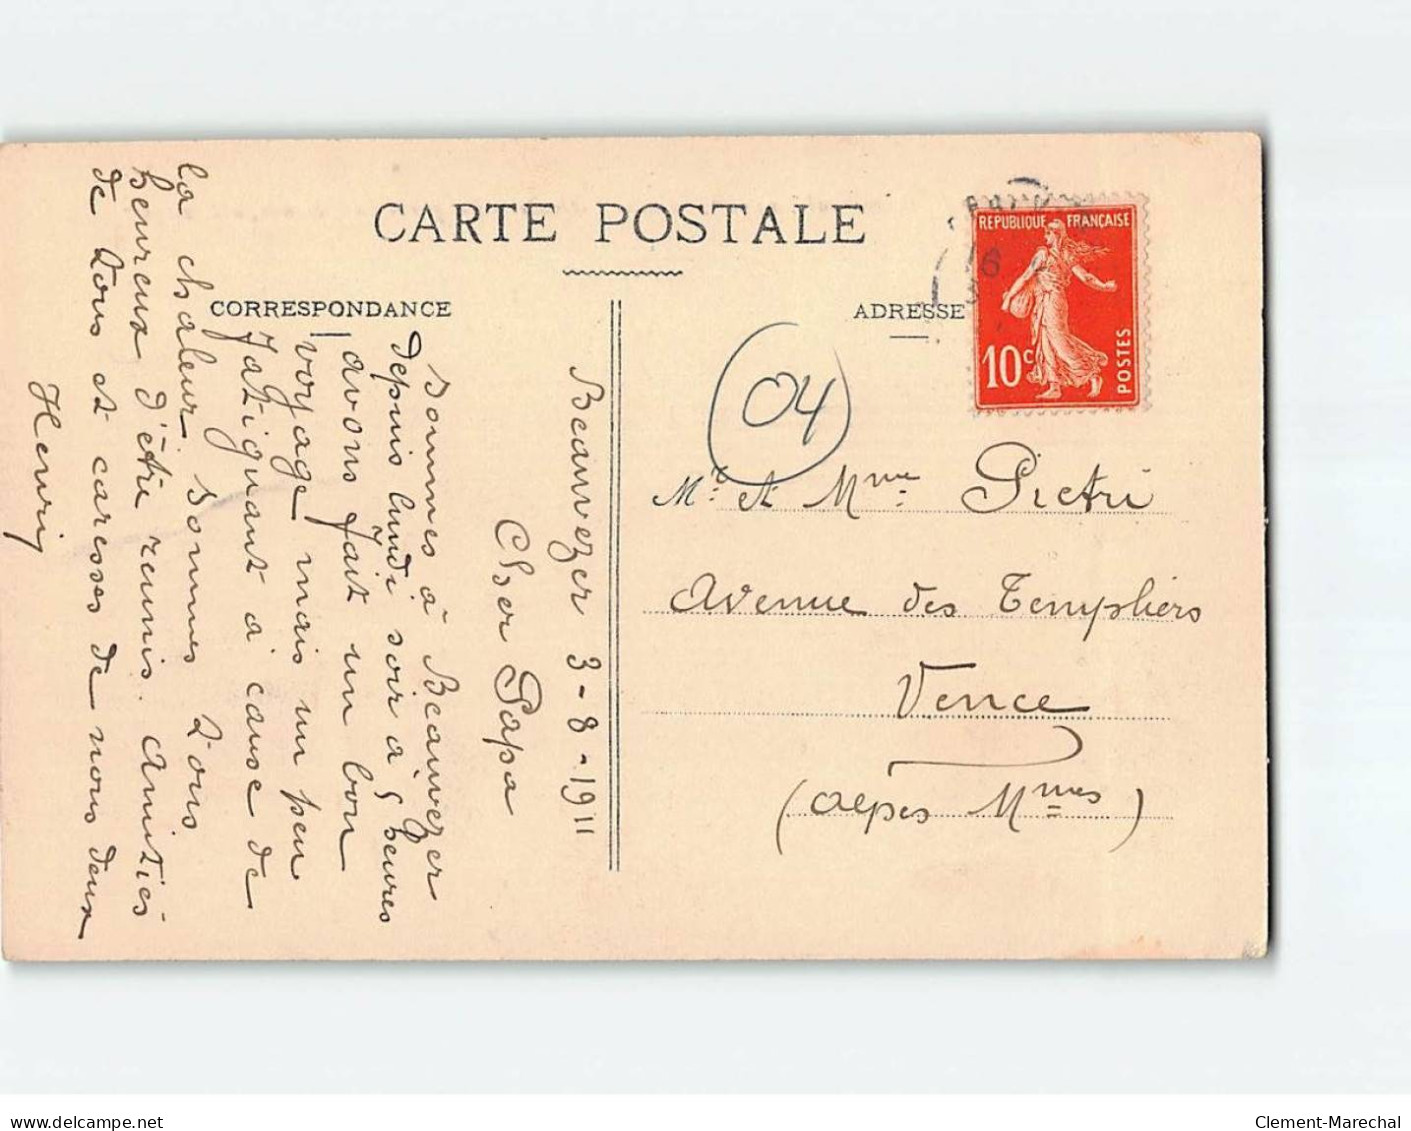 CARTE POSTALE
CORRESPONDANCE
ADRESSE
REPUBLIQUE FRANÇAISE
10c
POSTES
04
Mr et Mme Pietri
Avenue des Templiers
Vence
(Alpes Mmes)
Beauvezer 3-8-1911
Cher Papa
Sommes à Beauvezer
depuis lundi soir à 5 heures
avons fait un bon
voyage mais un peu
fatiguant à cause de
la chaleur. Sommes tous
heureux d'être réunis. Amitiés
de tous et caresses de nous deux
Henri
www.delcampe.net
Clement-Marechal